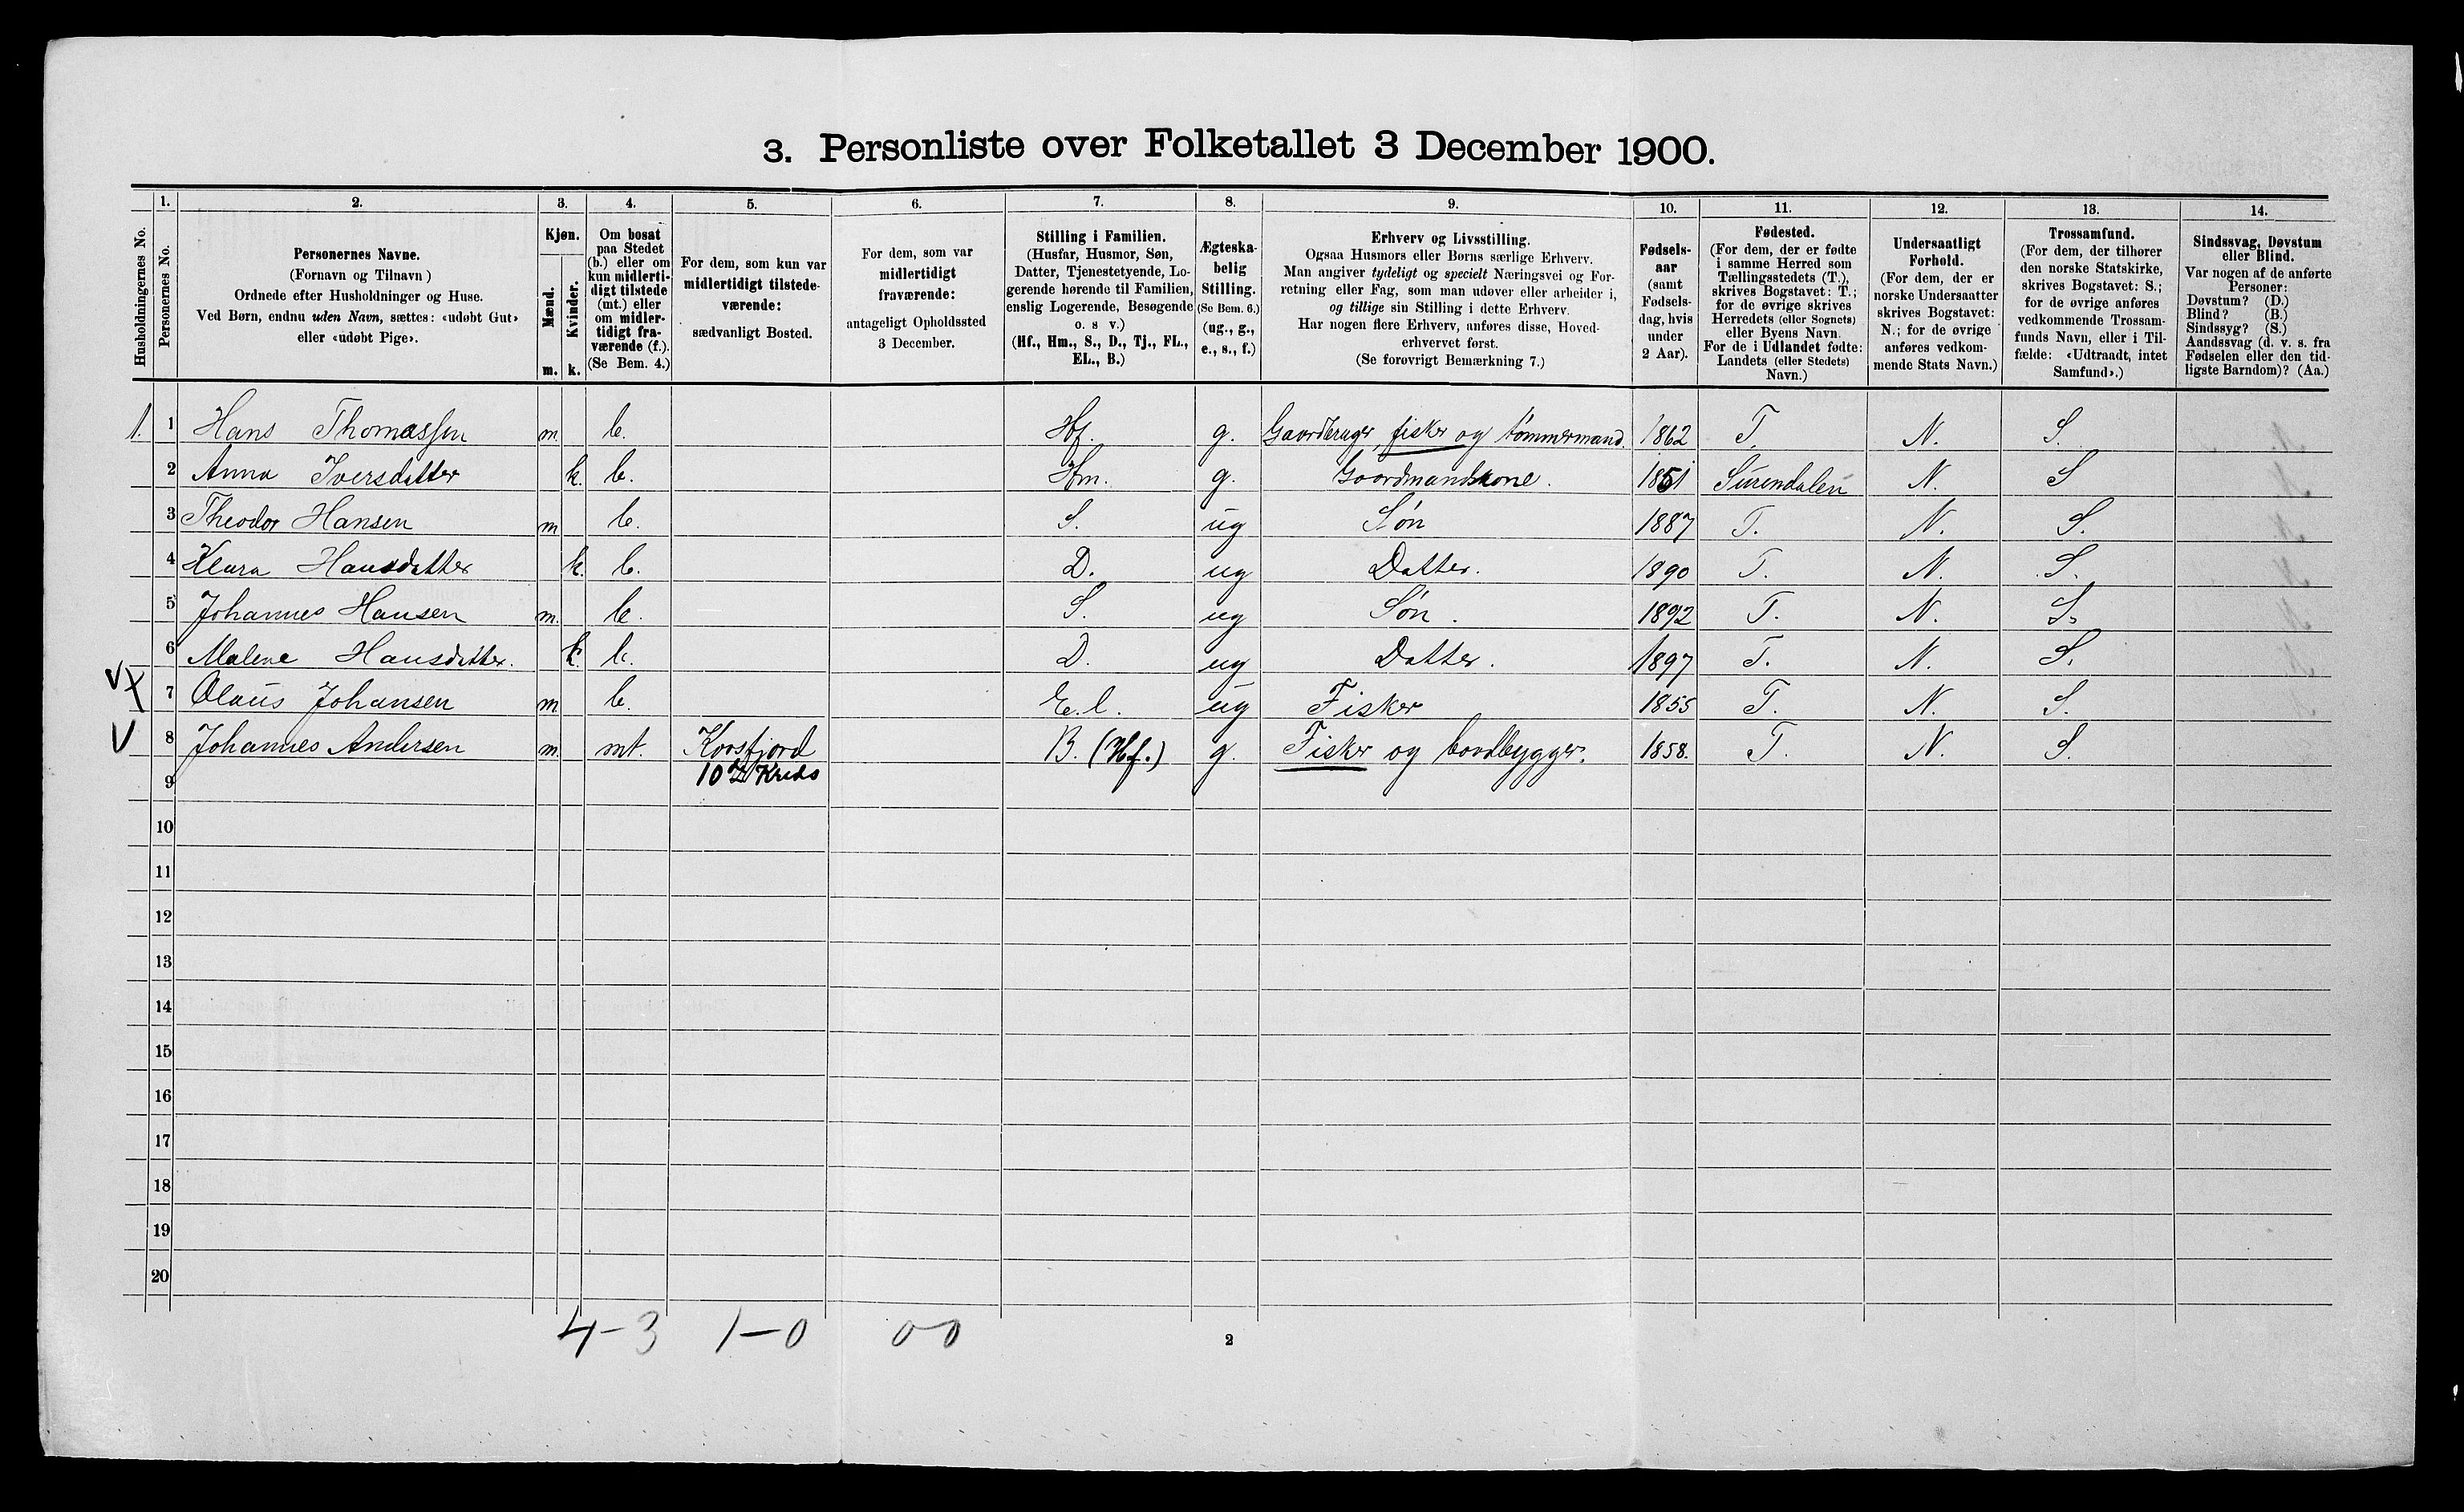 3. Personliste over Folketallet 3 December 1900.
Husholdningernes No.
1. Personernes No.
2. Personernes Navne.
(Fornavn og Tilnavn)
Ordnede efter Husholdninger og Huse.
Ved Børn, endnu uden Navn, sættes: «udøbt Gut»
eller «udøbt Pige».
3. Kjøn.
Mænd. Kvinder.
m. k.
4. Om bosat
paa Stedet
(b.) eller om
kun midlerti-
digt tilstede
(mt.) eller
om midler-
tidigt fra-
værende (f.).
(Se Bem. 4.)
5. For dem, som kun var
midlertidigt tilstede-
værende:
sædvanligt Bosted.
6. For dem, som var
midlertidigt
fraværende:
antageligt Opholdssted
3 December.
7. Stilling i Familien.
(Husfar, Husmor, Søn,
Datter, Tjenestetyende, Lo-
gerende hørende til Familien,
enslig Logerende, Besøgende
o. s v.)
(Hf., Hm., S., D., Tj., FL.,
EL., B.)
8. Ægteska-
belig
Stilling.
(Se Bem. 6.)
(ug., g.,
e., s., f.)
9. Erhverv og Livsstilling.
Ogsaa Husmors eller Børns særlige Erhverv.
Man angiver tydeligt og specielt Næringsvei og For-
retning eller Fag, som man udøver eller arbeider i,
og tillige sin Stilling i dette Erhverv.
Har nogen flere Erhverv, anføres disse, Hoved-
erhvervet først.
(Se forøvrigt Bemærkning 7.)
10. Fødsels-
aar
(samt
Fødsels-
dag, hvis
under
2 Aar).
11. Fødested.
(For dem, der er fødte
i samme Herred som
Tællingsstedets (T.),
skrives Bogstavet: T.;
for de øvrige skrives
Herredets (eller Sognets)
eller Byens Navn.
For de i Udlandet fødte:
Landets (eller Stedets)
Navn.)
12. Undersaatligt
Forhold.
(For dem, der er
norske Undersaatter
skrives Bogstavet:
N.; for de øvrige
anføres vedkom-
mende Stats Navn.)
13. Trossamfund.
(For dem, der tilhører
den norske Statskirke,
skrives Bogstavet: S.;
for de øvrige anføres
vedkommende Trossam-
funds Navn, eller i Til-
fælde: «Udtraadt, intet
Samfund».)
14. Sindssvag, Døvstum
eller Blind.
Var nogen af de anførte
Personer:
Døvstum? (D.)
Blind? (B.)
Sindssyg? (S.)
Aandssvag (d. v. s. fra
Fødselen eller den tid-
ligste Barndom)? (Aa.)
1. 1 Hans Thomassen m. b. Hf. g. Gaardbruger, fisker og tømmermand. 1862 T. N. S.
2 Anna Iversdatter k. b. Hm. g. Gaardmandskone. 1851 Surendalen N. S
3 Theodor Hansen m b. S. ug Søn 1887 T. N. S.
4 Klara Hansdatter k. b. D. ug Datter. 1890 T. N. S.
5 Johannes Hansen m. b. S. ug Søn. 1892 T. N. S.
6 Malene Hansdatter. k. b. D. ug Datter. 1897 T. N. S.
7 Olaus Johansen m b. E. l. ug Fisker 1855 T. N. S.
8 Johannes Andersen m. mt. Korsfjord B. (Hf.) g. Fisker og baadbygger. 1858. T. N. S.
9 10 Kreds
10
11
12
13
14
15
16
17
18
19
20
4-3 1-0 0-0
2